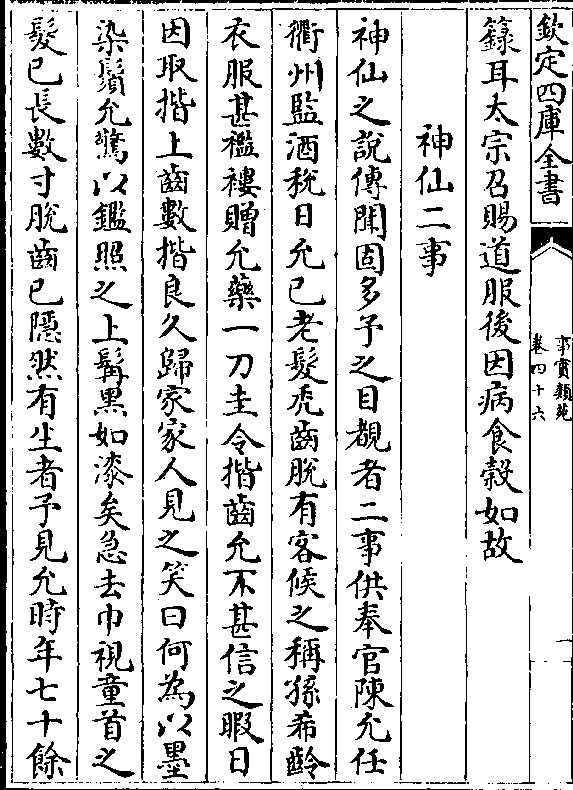 欽定四庫全書
事實類苑
卷四十六
籙耳太宗召賜道服後因病食穀如故
神仙二事
神仙之說傳聞固多予之目覩者二事供奉官陳允任
衢州監酒稅日允已老髮禿齒脫有客候之稱孫希齡
衣服甚襤褸贈允藥一刀圭令揩齒允不甚信之暇日
因取揩上齒數揩良久歸家家人見之笑曰何為以墨
染鬚允驚以鑑照之上髯黑如漆矣急去巾視童首之
髮已長數寸脫齒已隱然有生者予見允時年七十餘